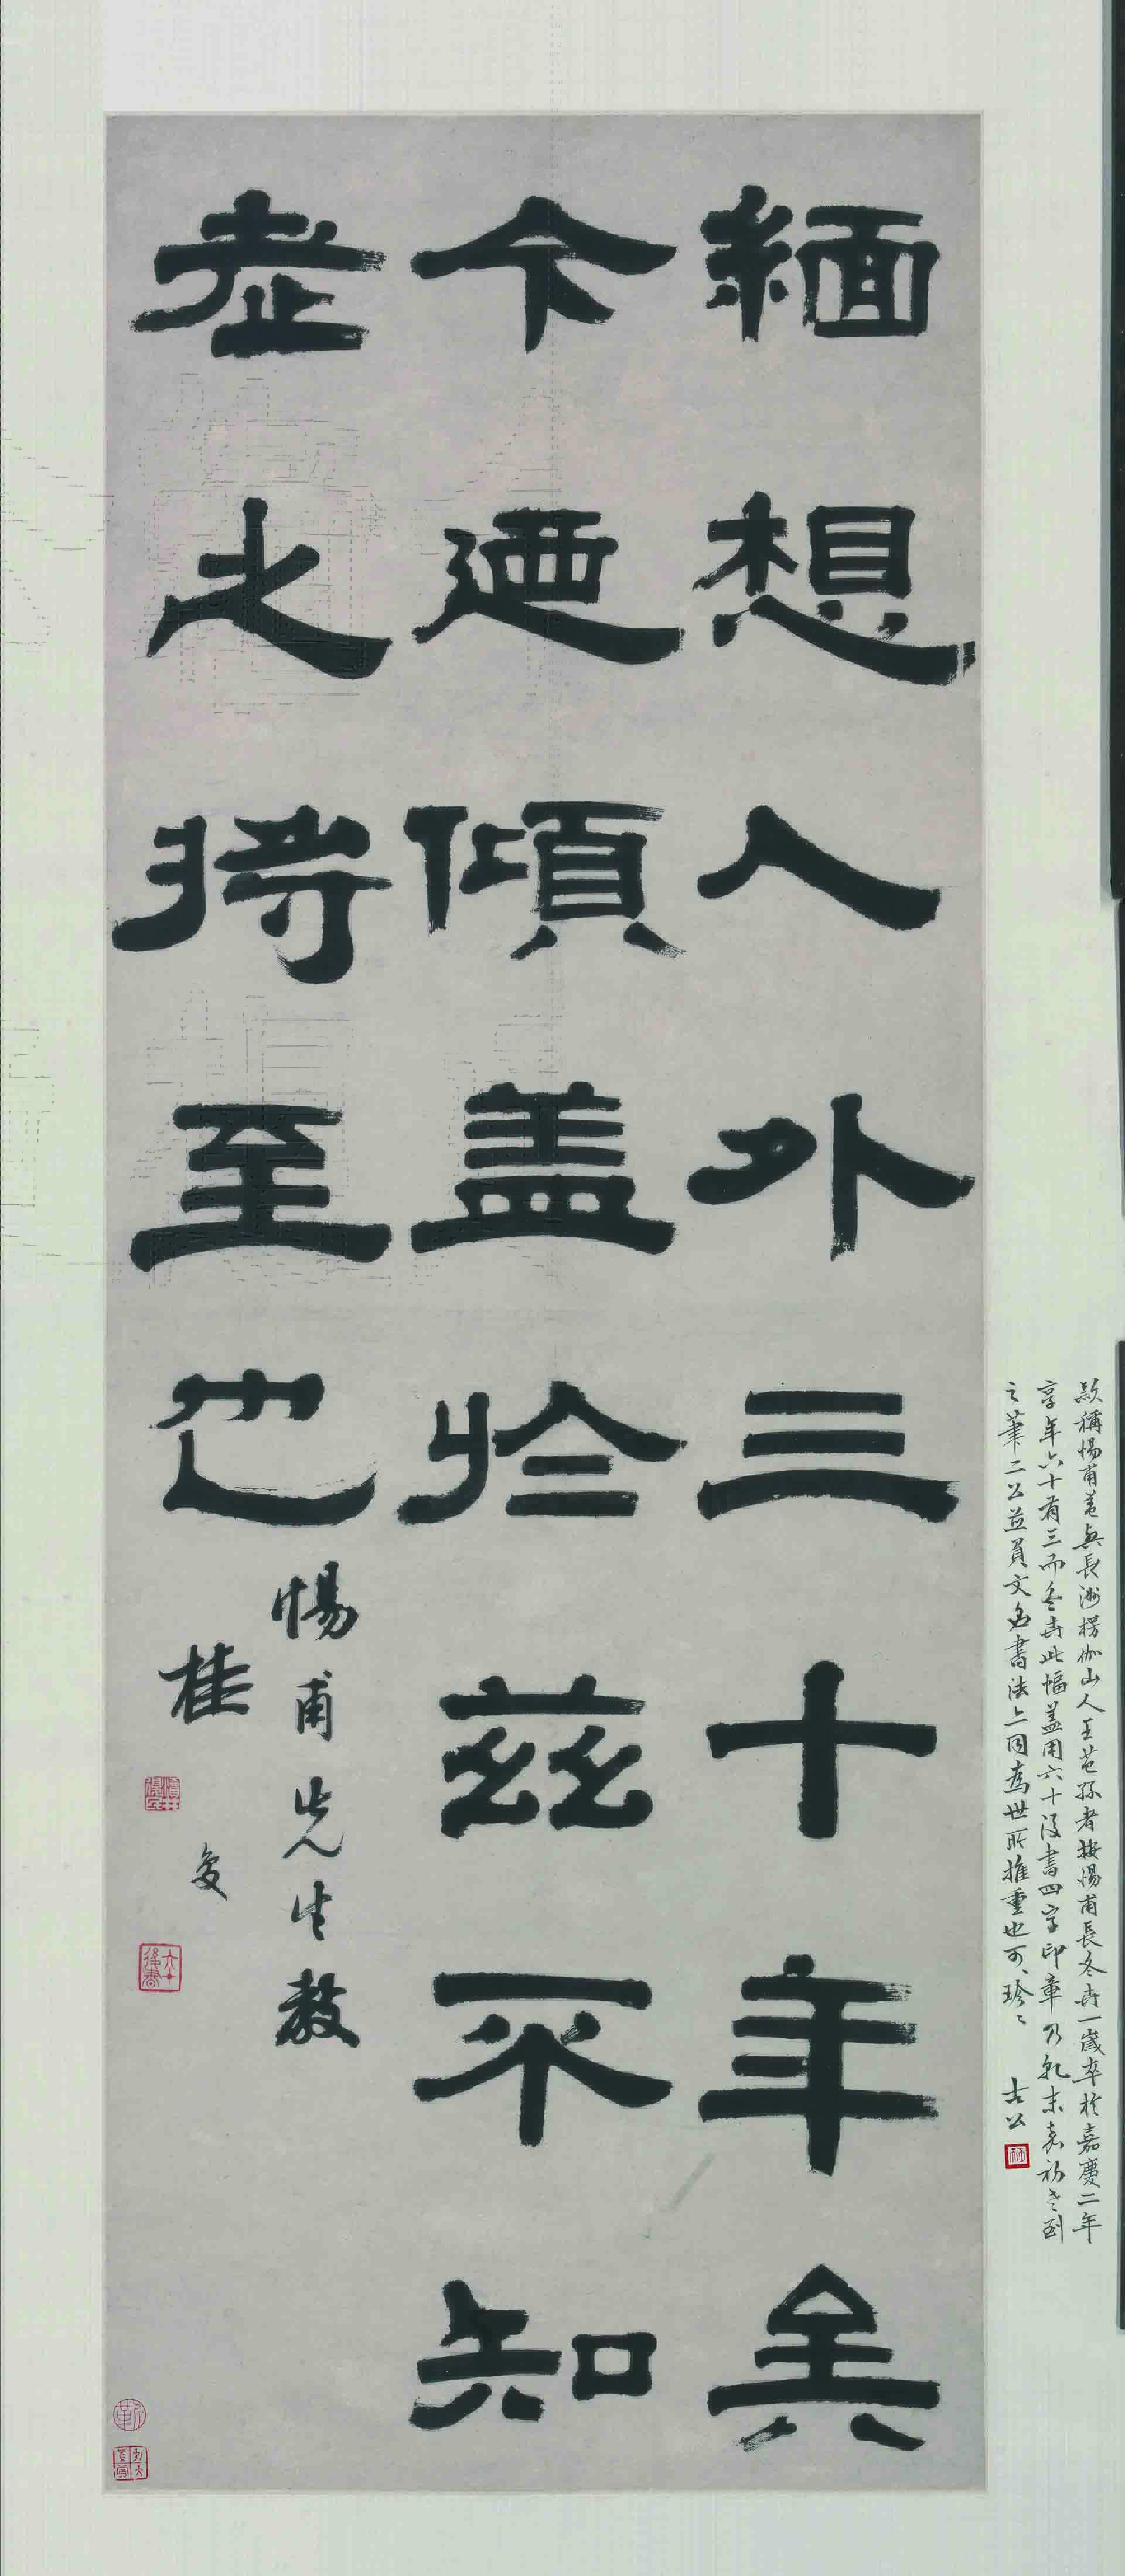 緬想人外三十年矣
今迺傾盖於茲不知
老之將至也
惕甫先生教
桂馥
六十後書
款稱惕甫蓋與長洲楞伽山人王芑孫者按惕甫長冬卉一歲卒於嘉慶二年
享年六十有三而冬卉此幅蓋用六十後書四字印章乃乾末嘉初老到
之筆二公並負文名書法亦同為世所推重也可珍珍 古公